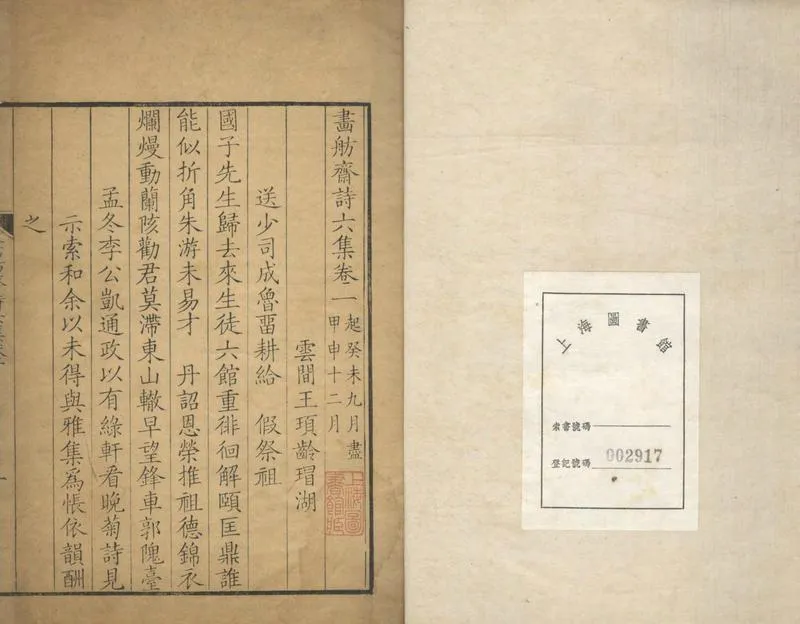 畫舫齋詩六集卷二 起癸未九月盡甲申十二月
雲間王頊齡瑁湖
送少司成魯畱耕給 假祭祖
國子先生歸去來生徒六館重徘徊解頤匡鼎誰
能似折角朱游未易才 丹詔恩榮推祖德錦衣
爛熳動蘭陔勸君莫滯東山轍早望鋒車郭隗臺
孟冬李公凱通政以有綠軒看晚菊詩見
示索和余以未得與雅集爲悵依韻酬
之
上海圖書館藏
上海圖書館
索書號碼
登記號碼 002917